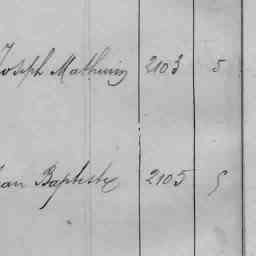 Joseph Mathurin 2103 5
Jean Baptiste 2105 5